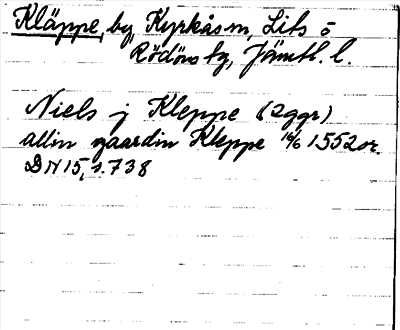 Kläppe, by, Kyrkås sn, Lits o
Rödöns tg, Jämtl. l.
Niels j Kleppe (2ggr)
allin gaardin Kleppe 16/6 1552 or.
DN 15, s. 738